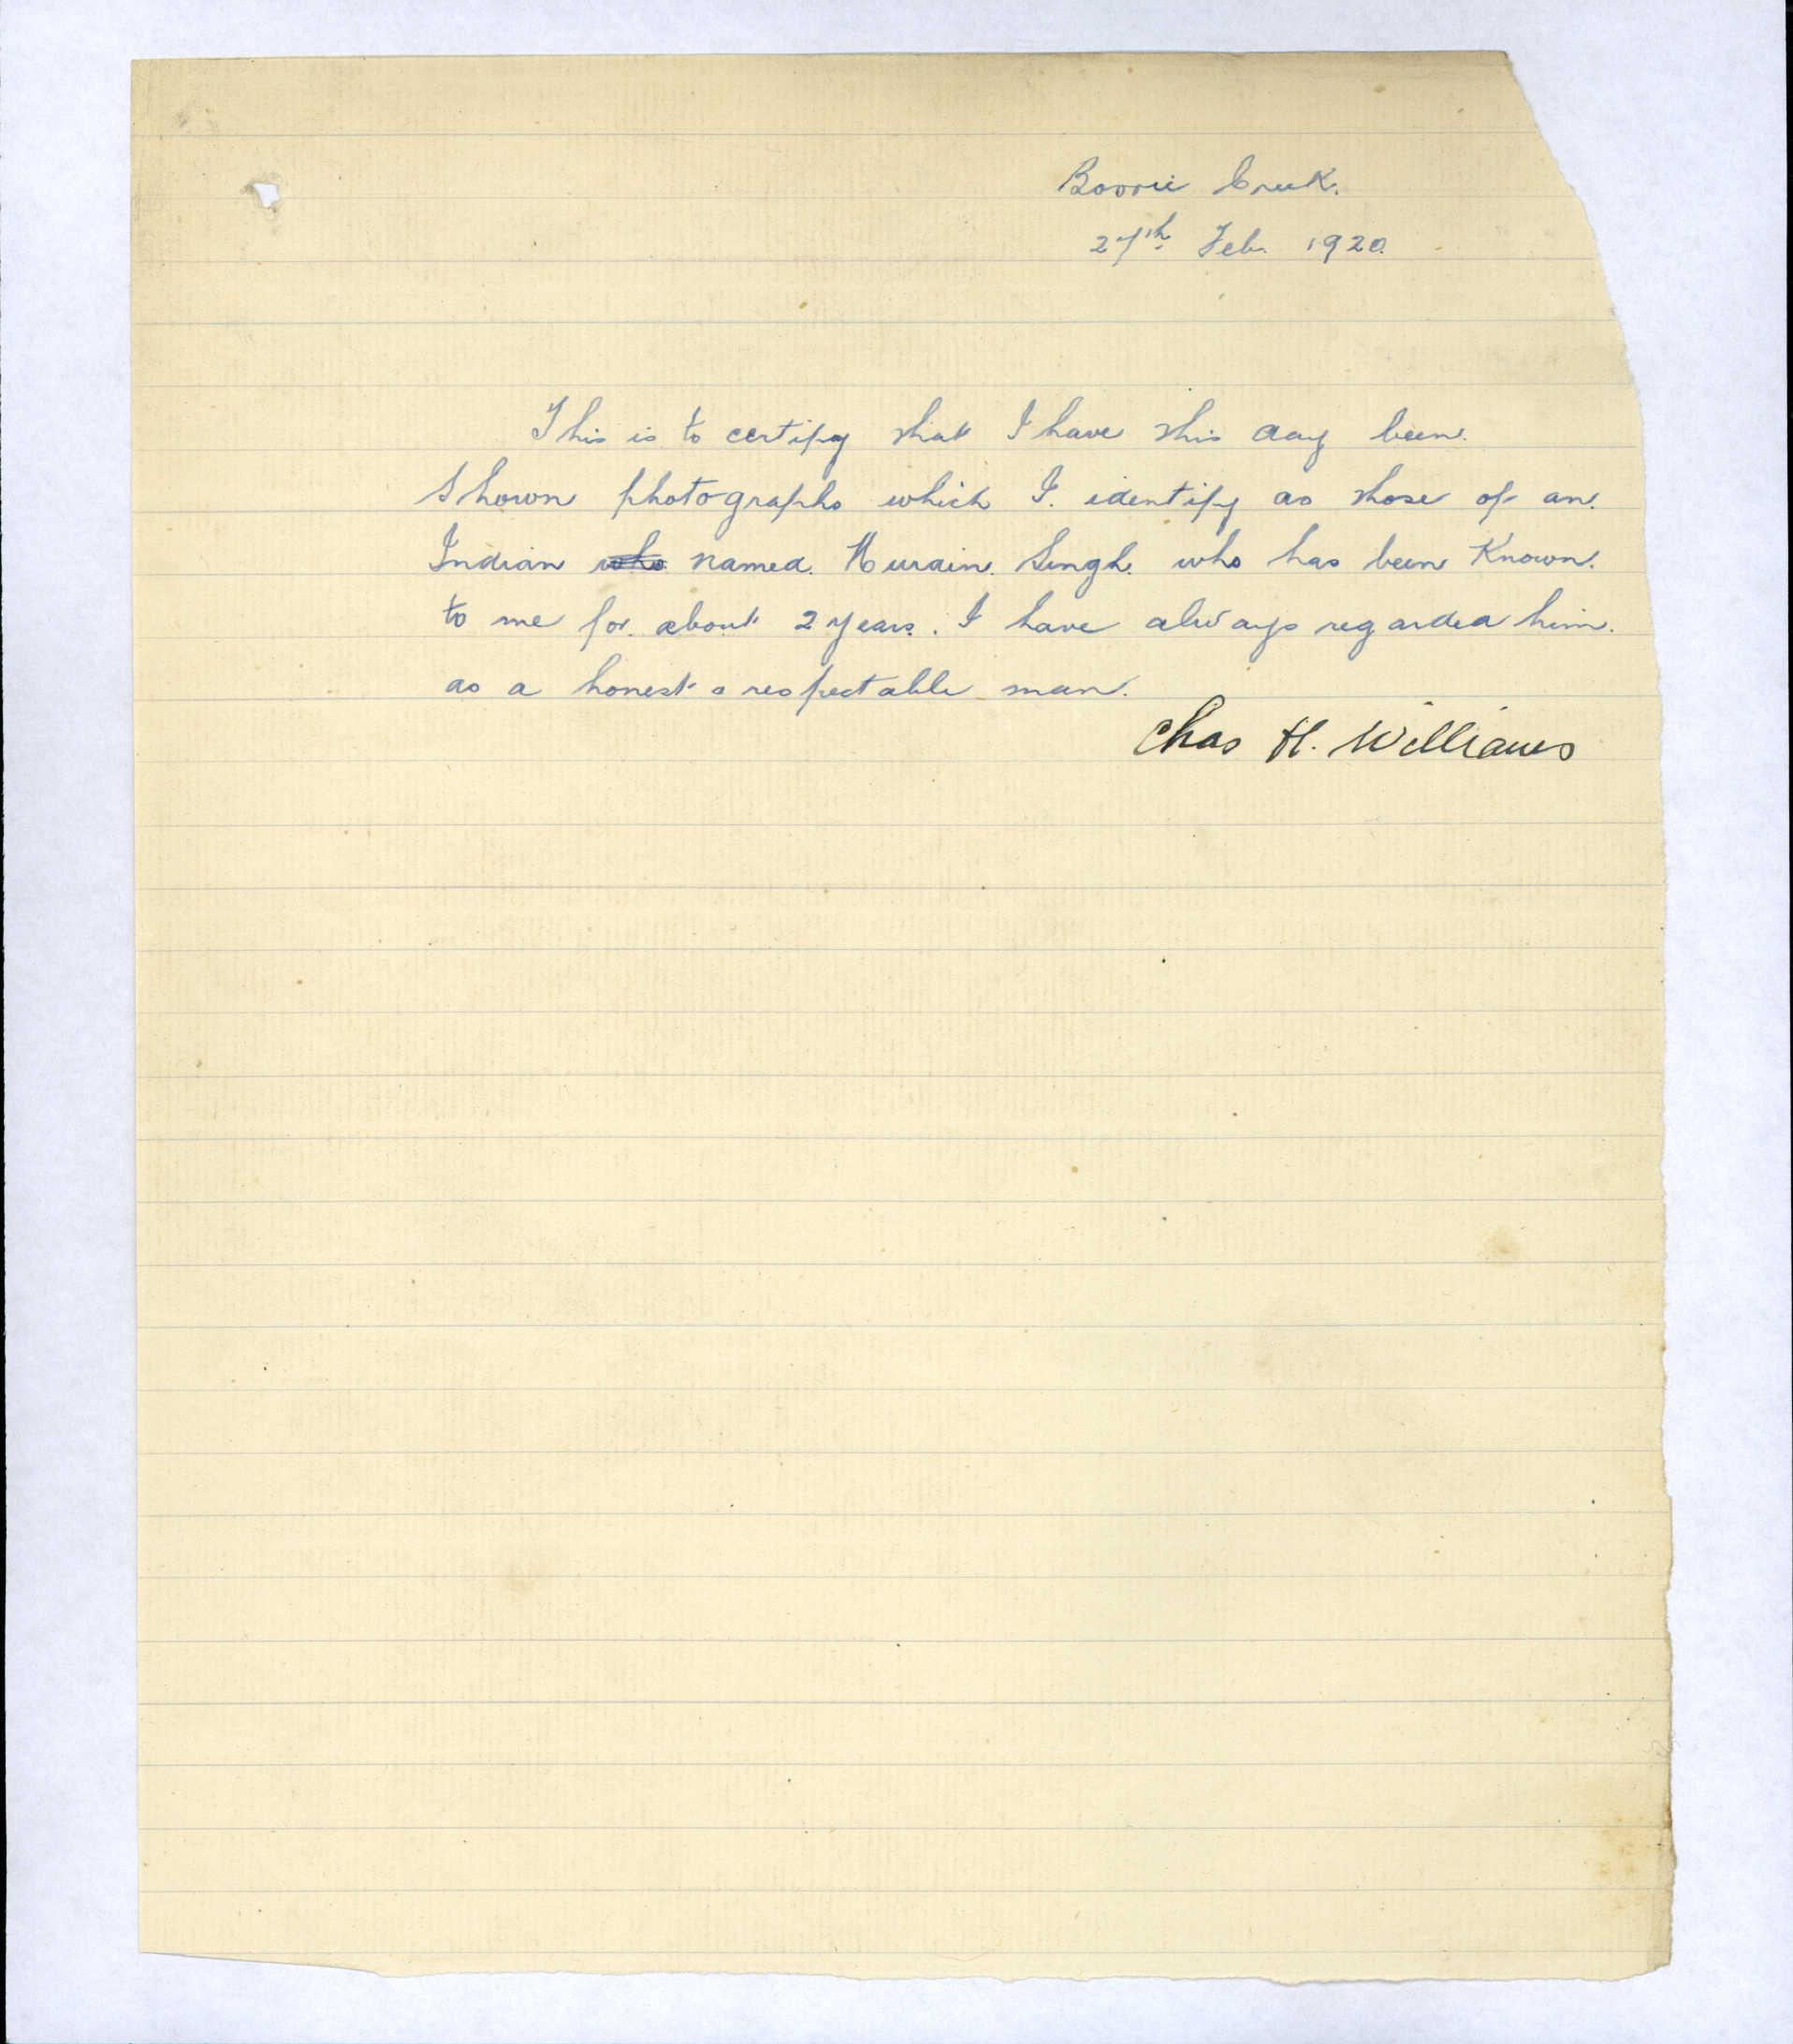 Boorie Creek.
27th Feb. 1920.
This is to certify that I have this day been
shown photographs which I identify as those of an
Indian who named Hurain Singh who has been Known
to me for about 2 years. I have always regarded him
as a honest & respectable man.
Chas H. Williams